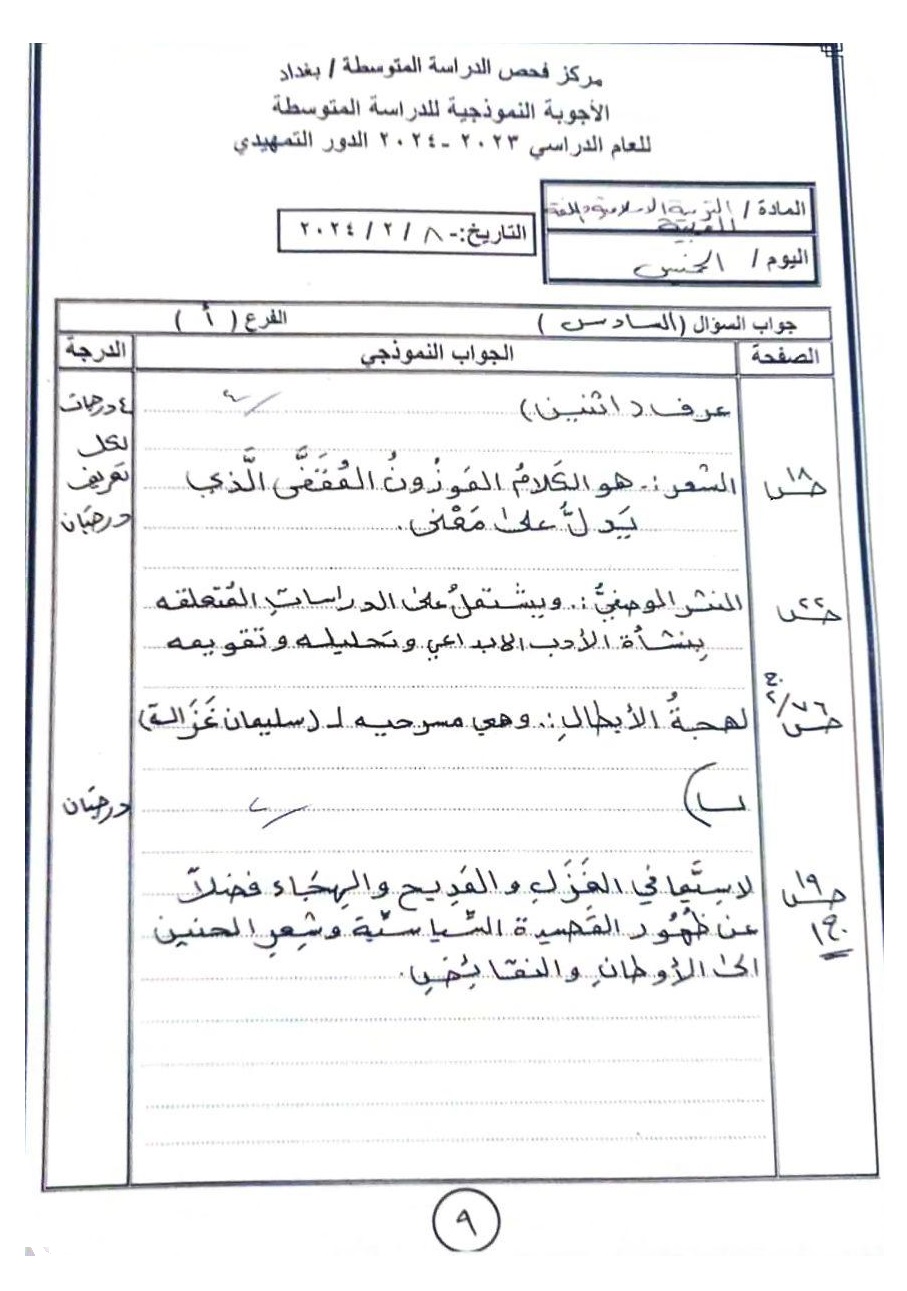 مركز فحص الدراسة المتوسطة / بغداد
الأجوبة النموذجية للدراسة المتوسطة
للعام الدراسي ٢٠٢٣ -٢٠٢٤ الدور التمهيدي
المادة / التربية الاسلامية واللغة
العربية
التاريخ:- ٨ / ٢ / ٢٠٢٤
اليوم / الخميس
جواب السؤال (السادس) الفرع ( أ )
الصفحة الجواب النموذجي الدرجة
عرف (اثنين) ٤درجات
لكل
ص١٨ الشعر :. هو الكَلامُ المَوزُونُ المُقَفَّى الَّذي تعريف
يَدلُّ على مَعْنى. درجتان
ص٢٢ النثر الوصفيُّ :. ويشتملُ على الدراساتِ المُتعلقه
بِنشأة الأدب الابداعي وتحليله وتقويمه
ص٧٦/ج٢ لهجةُ الأبطالِ :. وهي مسرحيه لـ (سليمان غَزَالة)
ب) درجتان
ص١٩ لاسِيَّما في الغَزَلِ والمَديحِ والهِجَاء فضلاً
ج١ عن ظُهُور القَصيدة السِّياسيَّة وشعرِ الحنين
الى الأوطانِ والنقائِضِ.
٩